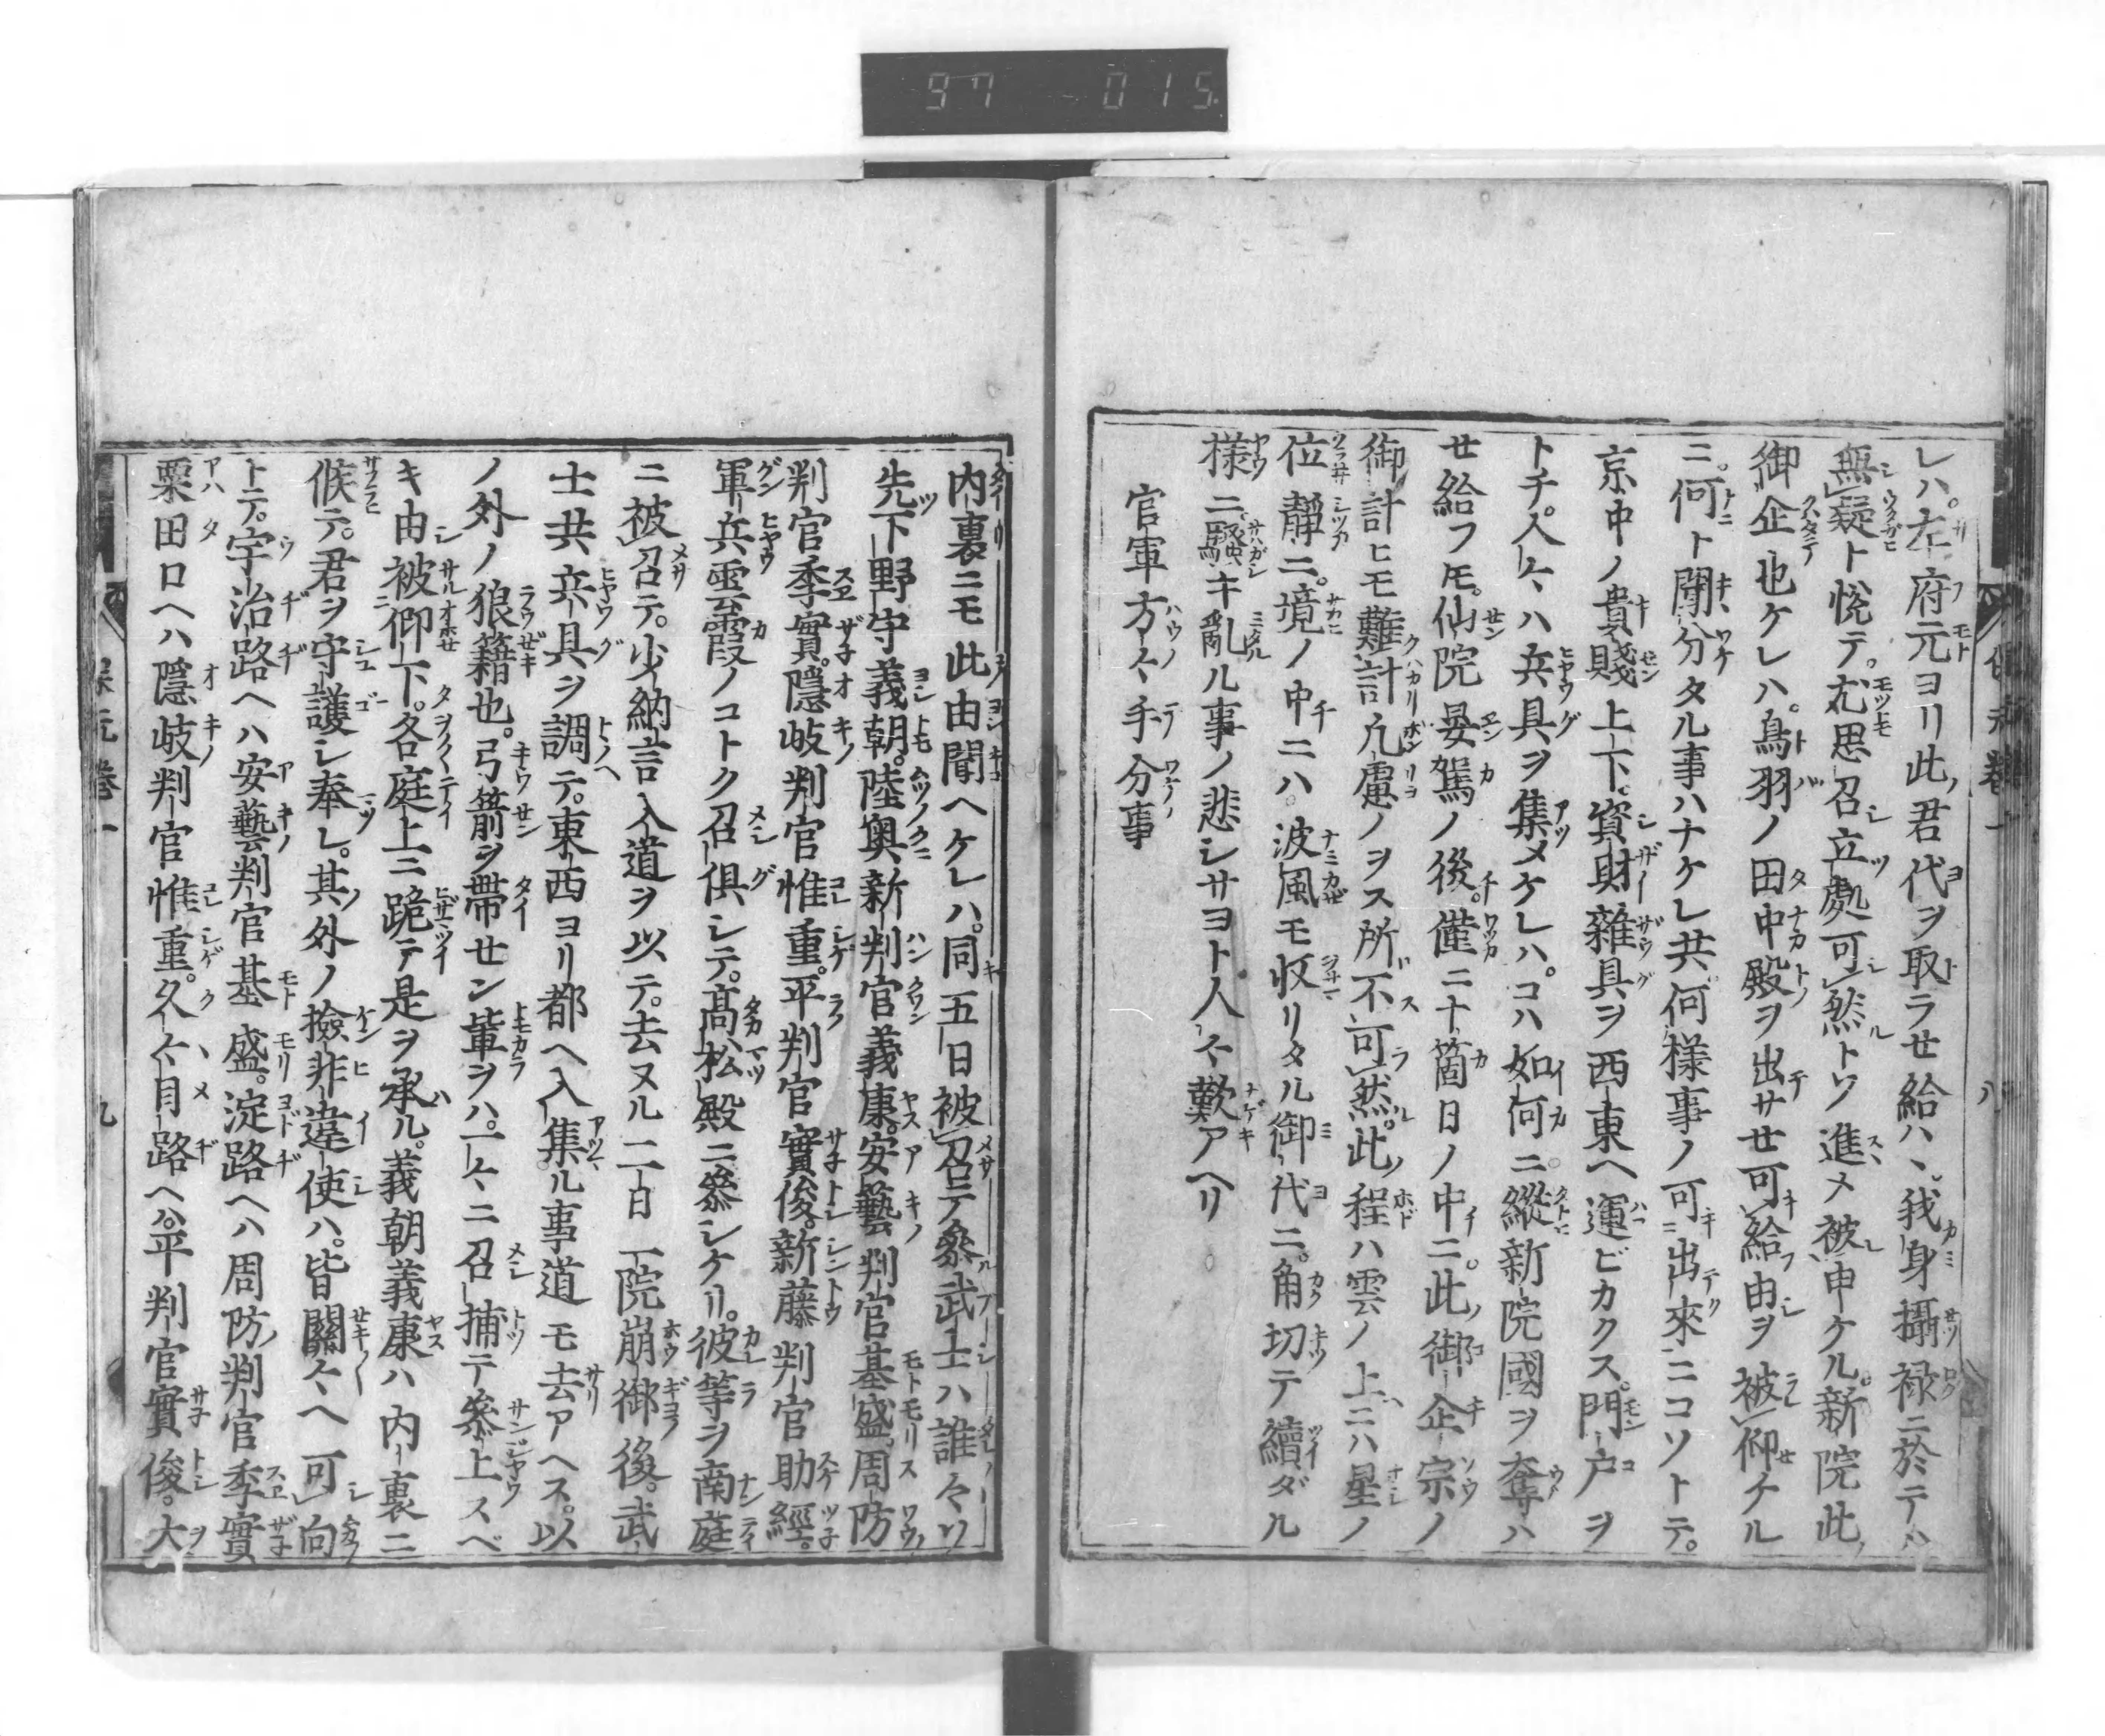 97 015
レハ。左府元ヨリ此君代ヲ取ラせ給ハヽ。我身攝禄ニ於テハ
無疑ト悦テ。尤思召立處可然トソ進メ被申ケル。新院此
御企也ケレハ。鳥羽ノ田中殿ヲ出サせ可給由ヲ被仰ケル
ニ。何ト聞分タル事ハナケレ共何様事ノ可出來ニコソトテ。
京中ノ貴賤上下。資財雜具ヲ西東ヘ運ビカクス。門戸ヲ
トチ。人々ハ兵具ヲ集メケレハ。コハ如何ニ。縱新院國ヲ奪ハ
せ給フモ。仙院晏駕ノ後。僅ニ十箇日ノ中ニ。此御企宗ノ
御計ヒモ難計凡慮ノヲス所不可然。此程ハ雲ノ上ニハ星ノ
位靜ニ。境ノ中ニハ。波風モ收リタル御代ニ。角切テ續ダル
様ニ。騒キ亂ル事ノ悲シサヨト人々歎アヘリ
官軍方々手分事
内裏ニモ此由聞ヘケレハ。同五日被召テ參武士ハ誰々ソ
先下野守義朝。陸奥新判官義康。安藝判官基盛。周防
判官季實。隱岐判官惟重。平判官實俊。新藤判官助經。
軍兵雲霞ノコトク召俱シテ。髙松殿ニ參シケリ。彼等ヲ南庭
ニ被召テ。少納言入道ヲ以テ。去ヌル二日一院崩御後。武
士共兵具ヲ調テ。東西ヨリ都ヘ入集ル事道モ去アヘス。以
ノ外ノ狼籍也。弓箭ヲ帶せン輩ヲハ。一々ニ召捕テ參上スベ
キ由被仰下。各庭上ニ跪テ是ヲ承ル。義朝義康ハ内裏ニ
候テ。君ヲ守護シ奉レ。其外ノ撿非違使ハ。皆關々ヘ可向
トテ。宇治路ヘハ安藝判官基盛。淀路ヘハ周防判官季實
粟田口ヘハ隱岐判官惟重。久々目路ヘハ。平判官實俊。大
保元巻一
九